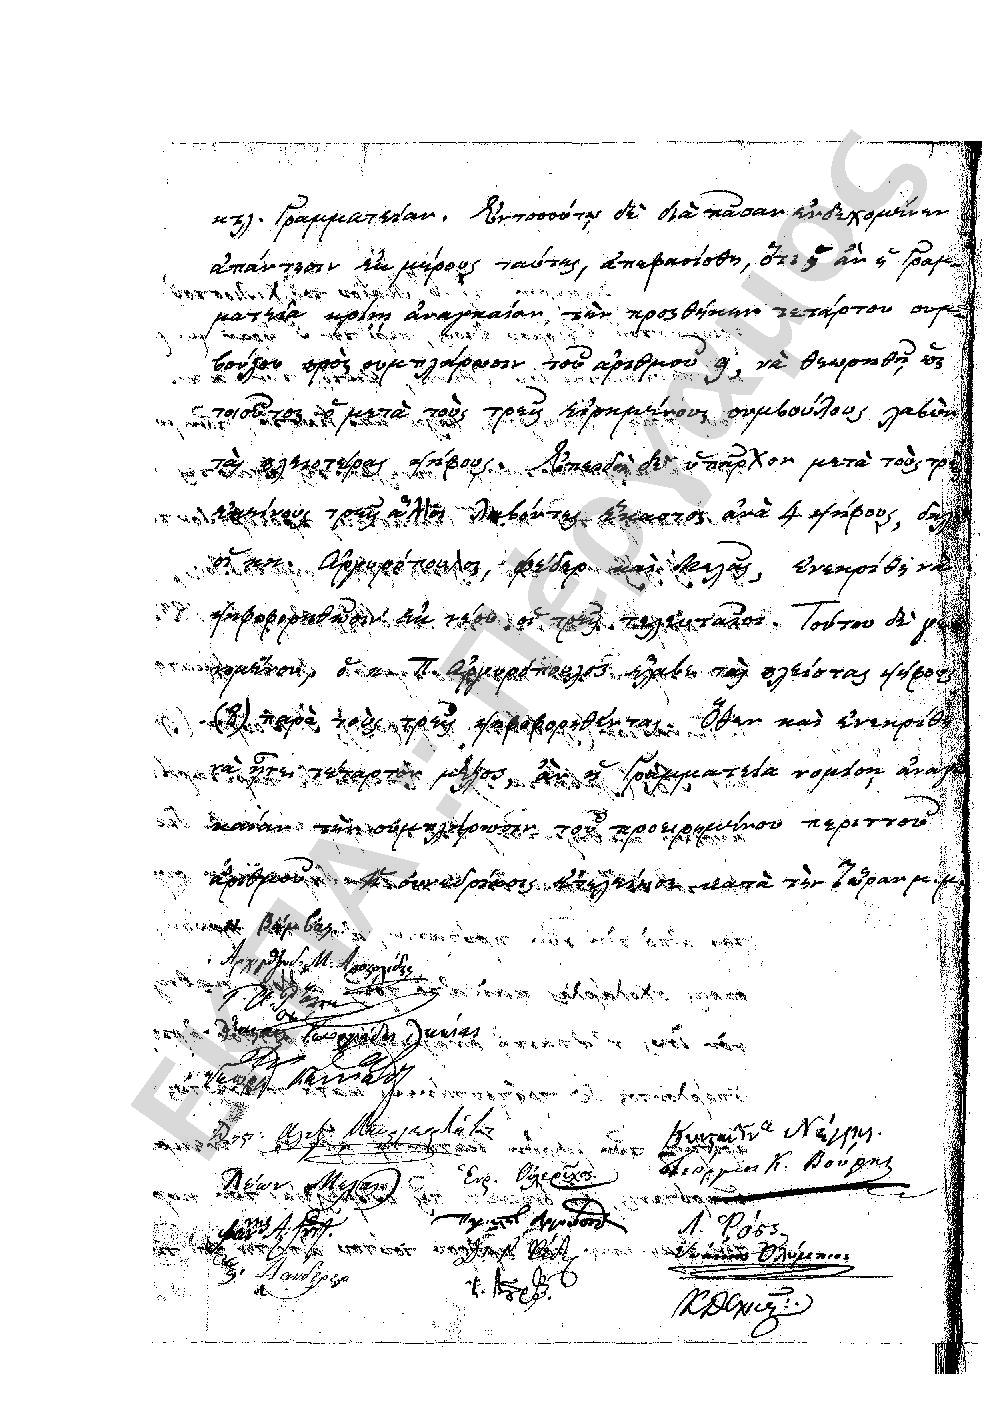 κτλ. Γραμματείαν. Ἐντοσούτῳ δὲ διὰ πᾶσαν ἐνδεχομένην
ἀπάντησιν ἐκ μέρους ταύτης, ἀπεφασίσθη, ὅτι ἂν ἡ Γραμ-
ματεία κρίνῃ ἀναγκαίαν τὴν προσθήκην τετάρτου συμ-
βούλου πρὸς συμπλήρωσιν τοῦ ἀριθμοῦ 9, νὰ θεωρηθῇ ὡς
τοιοῦτος ὁ μετὰ τοὺς τρεῖς εἰρημένους συμβούλους λαβὼν
τὰς πλειοτέρας ψήφους. Ἐπειδὴ δὲ ὑπῆρχον μετὰ τοὺς τρεῖς
ἐκείνους τρεῖς ἄλλοι λαβόντες ἕκαστος ἀνὰ 4 ψήφους, δηλ.
οἱ κκ. Ἀργυρόπουλος, Φέδερ καὶ Μελᾶς, ἐνεκρίθη νὰ
ψηφοφορηθῶσιν ἐκ νέου οἱ τρεῖς τελευταῖοι. Τούτου δὲ γε-
νομένου, ὁ κ. Π. Ἀργυρόπουλος ἔλαβε τὰς πλείστας ψήφους
(8) παρὰ τοὺς τρεῖς ψηφοφορηθέντας. Ὅθεν καὶ ἐνεκρίθη
νὰ ᾖναι τέταρτον μέλος, ἂν ἡ Γραμματεία νομίσῃ ἀναγ-
καίαν τὴν συμπλήρωσιν τοῦ προειρημένου περιττοῦ
ἀριθμοῦ. Ἡ συνεδρίασις ἐτελείωσε κατὰ τὴν ὥραν μ.μ.
Βάμβας
Μ. Ἀποστολίδης
Κωνσταντῖνος Νέγρης.
Γεώργιος Κ. Βούρης
Λέων Μελᾶς
Ἐρ. Οὐλερῖχος
Λ. Ῥόσς
Λάνδερερ